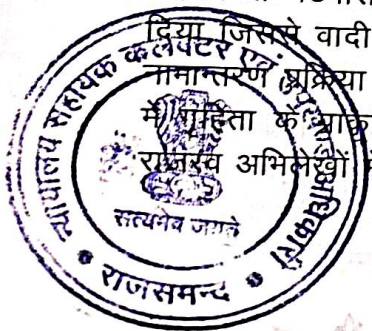 दिया जिससे वादी
नामान्तरण प्रक्रिया
में गृहिता के
राजस्व अभिलेखों
न्यायालय सहायक कलेक्टर एवं उपखण्ड अधिकारी
सत्यमेव जयते
राजसमन्द